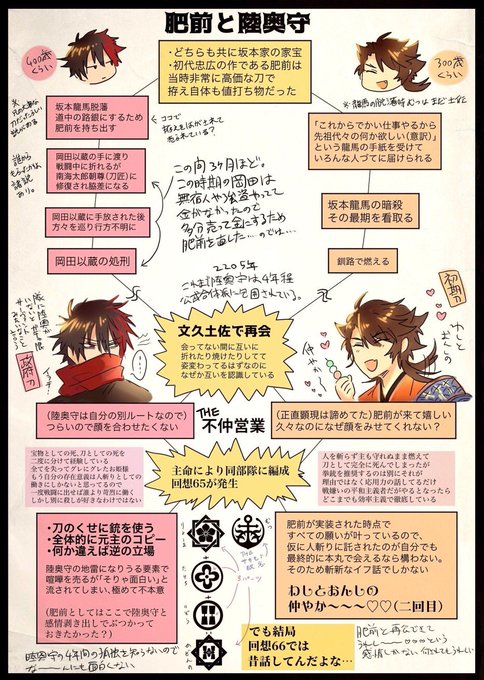 肥前と陸奥守
400歳
くらい
300歳
くらい
・どちらも共に坂本家の家宝
・初代忠広の作である肥前は
当時非常に高価な刀で
拵え自体も値打ち物だった
坂本龍馬脱藩
道中の路銀にするため
肥前を持ち出す
ココで
岡田以蔵の手に渡り
戦闘中に折れるが
南海太郎朝尊(刀匠)に
修復され脇差になる
誰から
諸説
あり。
岡田以蔵に手放された後
方々を巡り行方不明に
岡田以蔵の処刑
この間3ヶ月ほど。
この時期の岡田は
無宿人や強盗やって
金がなかったので
多分売って金にするため
肥前を直した…のでは…
「これからでかい仕事やるから
先祖代々の何か欲しい(意訳)」
という龍馬の手紙を受けて
いろんな人づてに届けられる
坂本龍馬の暗殺
その最期を看取る
釧路で燃える
2205年
文久土佐で再会
会ってない間に互いに
折れたり焼けたりしてて
姿変わってるはずなのに
なぜか互いを認識している
政府刀
初期刀
仲やか
(陸奥守は自分の別ルートなので)
つらいので顔を合わせたくない
THE
不仲営業
(正直顕現は諦めてた)肥前が来て嬉しい
久々なのになぜ顔をみせてくれない?
宝物としての死、刀としての死を
二度に分けて経験している
全てを失ってグレにグレたお姫様
もう自分の存在意義は人斬りとしての
働きにしかないと思ってるので
一度戦闘に出せば誰より苛烈に働く
しかし別に殺しが好きなわけではない
主命により同部隊に編成
回想65が発生
人を斬らず主も守れぬまま燃えて
刀として完全に死んでしまったが
拳銃を推奨するのは別にそれが
理由ではなく応用力の話してるだけ
戦嫌いの平和主義者だがやるとなったら
どこまでも効率主義で徹底している
・刀のくせに銃を使う
・全体的に元主のコピー
・何か違えば逆の立場
陸奥守の地雷になりうる要素で
喧嘩を売るが「そりゃ面白い」と
流されてしまい、極めて不本意
(肥前としてはここで陸奥守と
感情剥き出しでぶつかって
おきたかった?)
肥前が実装された時点で
すべての願いが叶っているので、
仮に人斬りに託されたのが自分でも
最終的に本丸で会えるなら構わない。
そのため斬新なイフ話でしかない
わしとおんしの
仲やか〜〜〜♡♡(二回目)
でも結局
回想66では
昔話してんだよな…
陸奥守の4年間の孤独を知らないので